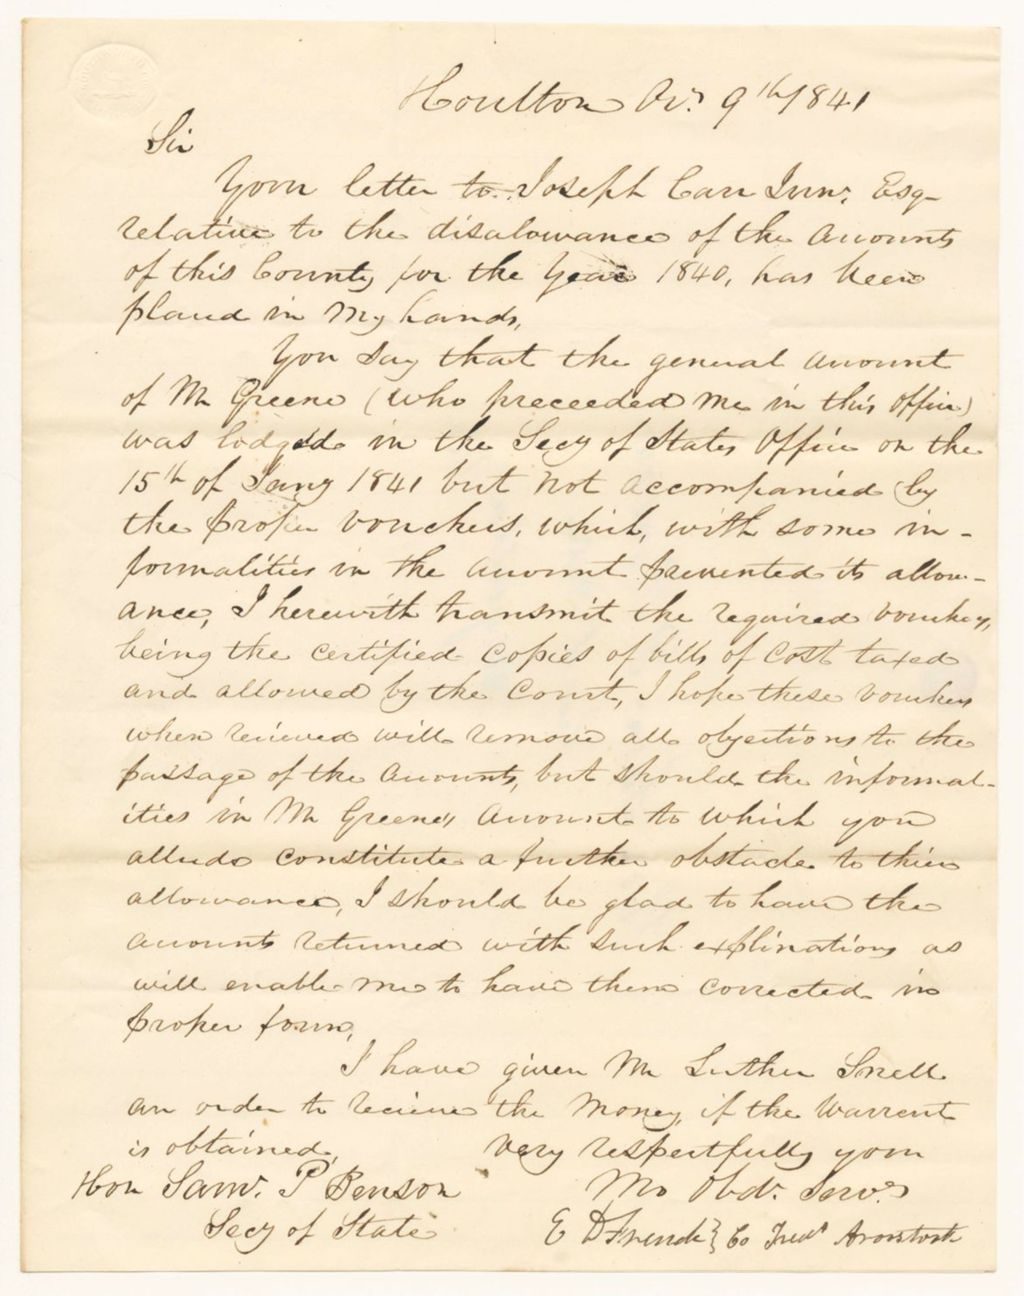 Houlton Nov. 9th 1841
Sir
Your letter to Joseph Carr Junr. Esq
relative to the disalowance of the Accounts
of this County for the Year 1840, has been
placed in my hands,
You say that the general account
of Mr Greene (who preceeded me in this office)
was lodged in the Secy of States Office on the
15th of Jany 1841 but not accompanied by
the proper vouchers, which, with some in-
formalities in the account prevented its allow-
ance, I herewith transmit the required vouchers,
being the certified copies of bills of cost taxed
and allowed by the Court, I hope these vouchers
when recieved will remove all objections to the
passage of the accounts, but should the informal-
ities in Mr Greenes account to which you
allude constitute a further obstacle to thier
allowance, I should be glad to have the
accounts returned with such explinations as
will enable me to have them corrected in
proper form,
I have given Mr Luther Snell
an order to recieve the money, if the warrent
is obtained, very respectfully your
Hon Saml. P Benson Mo Obdt. Servt
Secy of State E D French } Co Treas Aroostook